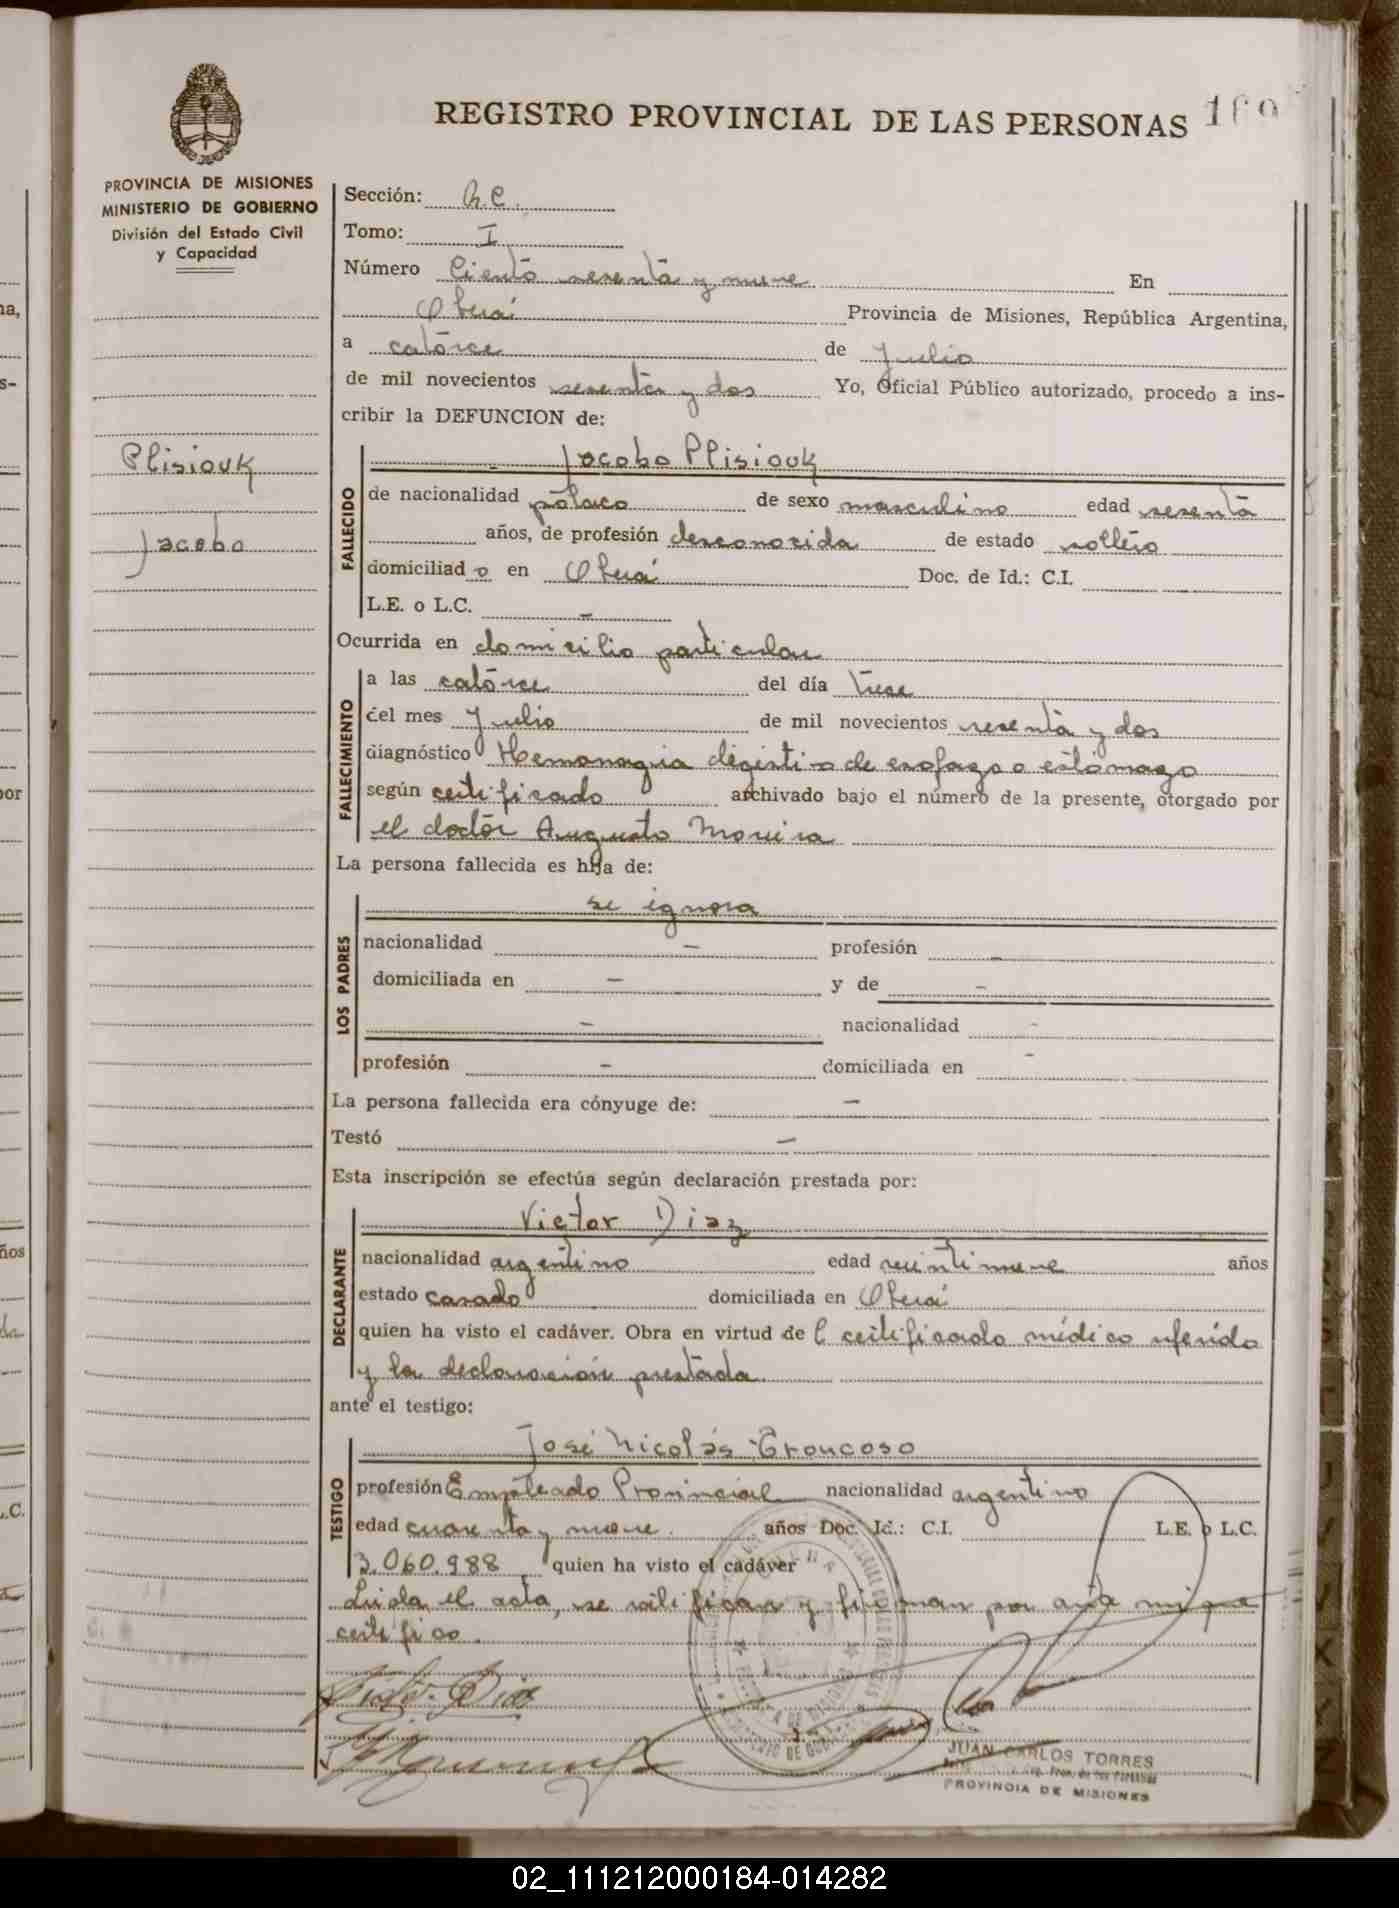 REGISTRO PROVINCIAL DE LAS PERSONAS 169
PROVINCIA DE MISIONES
MINISTERIO DE GOBIERNO
División del Estado Civil
y Capacidad
Plisiouk
Jacobo
Sección: R.C.
Tomo: I
Número Ciento sesenta y nueve En
Oberá Provincia de Misiones, República Argentina,
a catorce de Julio
de mil novecientos sesenta y dos Yo, Oficial Público autorizado, procedo a ins-
cribir la DEFUNCION de:
FALLECIDO
Jacobo Plisiouk
de nacionalidad polaco de sexo masculino edad sesenta
años, de profesión desconocida de estado soltero
domiciliado en Oberá Doc. de Id.: C.I.
L.E. o L.C. -
Ocurrida en domicilio particular
FALLECIMIENTO
a las catorce del día trece
del mes Julio de mil novecientos sesenta y dos
diagnóstico Hemorragia digestiva de esofago o estómago
según certificado archivado bajo el número de la presente, otorgado por
el doctor Augusto Moreira
La persona fallecida es hija de:
LOS PADRES
se ignora
nacionalidad - profesión -
domiciliada en - y de -
- nacionalidad -
profesión - domiciliada en -
La persona fallecida era cónyuge de: -
Testó -
Esta inscripción se efectúa según declaración prestada por:
DECLARANTE
Victor Diaz
nacionalidad argentino edad veintinueve años
estado casado domiciliada en Oberá
quien ha visto el cadáver. Obra en virtud del certificado médico referido
y la declaración prestada
ante el testigo:
TESTIGO
José Nicolás Troncoso
profesión Empleado Provincial nacionalidad argentino
edad cuarenta y nueve años Doc. Id.: C.I. L.E. o L.C.
3.060.988 quien ha visto el cadáver
Leida el acta, se ratifican y firman por ante mi que
certifico.
Victor Diaz
JUAN CARLOS TORRES
PROVINCIA DE MISIONES
02_111212000184-014282